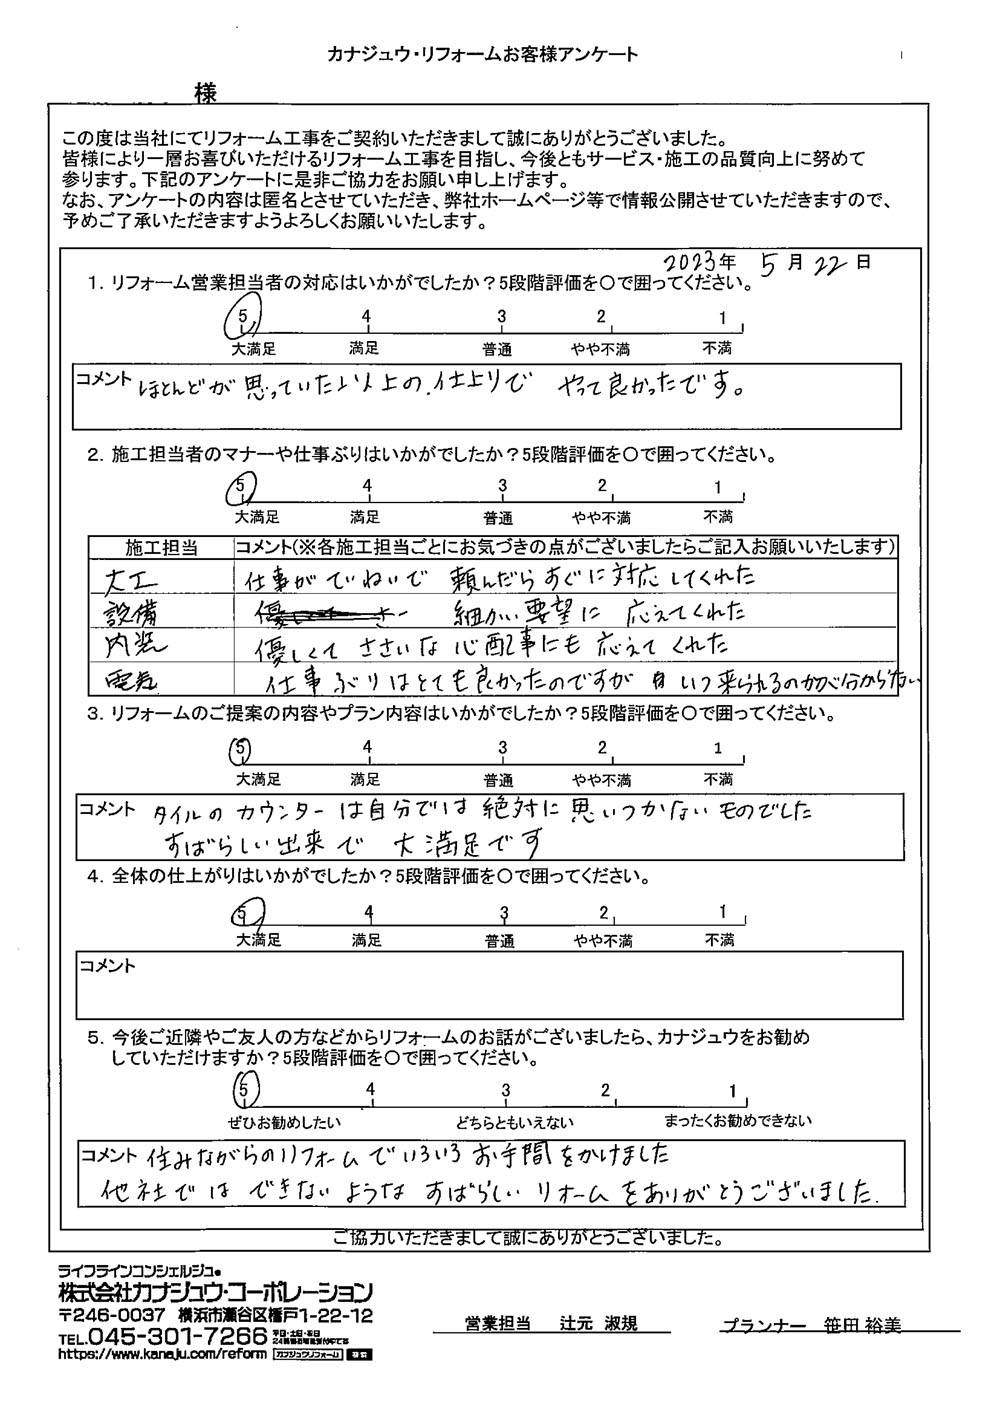 カナジュウ・リフォームお客様アンケート
様
この度は当社にてリフォーム工事をご契約いただきまして誠にありがとうございました。
皆様により一層お喜びいただけるリフォーム工事を目指し、今後ともサービス・施工の品質向上に努めて
参ります。下記のアンケートに是非ご協力をお願い申し上げます。
なお、アンケートの内容は匿名とさせていただき、弊社ホームページ等で情報公開させていただきますので、
予めご了承いただきますようよろしくお願いいたします。
2023年 5月22日
1. リフォーム営業担当者の対応はいかがでしたか？5段階評価を〇で囲ってください。
5 4 3 2 1
大満足 満足 普通 やや不満 不満
コメント ほとんどが思っていた以上の仕上りで やって良かったです。
2. 施工担当者のマナーや仕事ぶりはいかがでしたか？5段階評価を〇で囲ってください。
5 4 3 2 1
大満足 満足 普通 やや不満 不満
施工担当 コメント(※各施工担当ごとにお気づきの点がございましたらご記入お願いいたします)
大工 仕事がていねいで 頼んだらすぐに対応してくれた
設備 細かい要望に 応えてくれた
内装 優しくて ささいな心配事にも応えてくれた
電気 仕事ぶりはとても良かったのですが いつ来られるのかが分からない
3. リフォームのご提案の内容やプラン内容はいかがでしたか？5段階評価を〇で囲ってください。
5 4 3 2 1
大満足 満足 普通 やや不満 不満
コメント タイルのカウンターは自分では絶対に思いつかないものでした
すばらしい出来で 大満足です
4. 全体の仕上がりはいかがでしたか？5段階評価を〇で囲ってください。
5 4 3 2 1
大満足 満足 普通 やや不満 不満
コメント
5. 今後ご近隣やご友人の方などからリフォームのお話がございましたら、カナジュウをお勧め
していただけますか？5段階評価を〇で囲ってください。
5 4 3 2 1
ぜひお勧めしたい どちらともいえない まったくお勧めできない
コメント 住みながらのリフォームでいろいろお手間をかけました
他社では できないような すばらしいリォームをありがとうございました.
ご協力いただきまして誠にありがとうございました。
ライフラインコンシェルジュ
株式会社カナジュウ・コーポレーション
〒246-0037 横浜市瀬谷区橋戸1-22-12
TEL.045-301-7266
https://www.kanaju.com/reform カナジュウリフォーム 検索
営業担当 辻元 淑規
プランナー 笹田 裕美